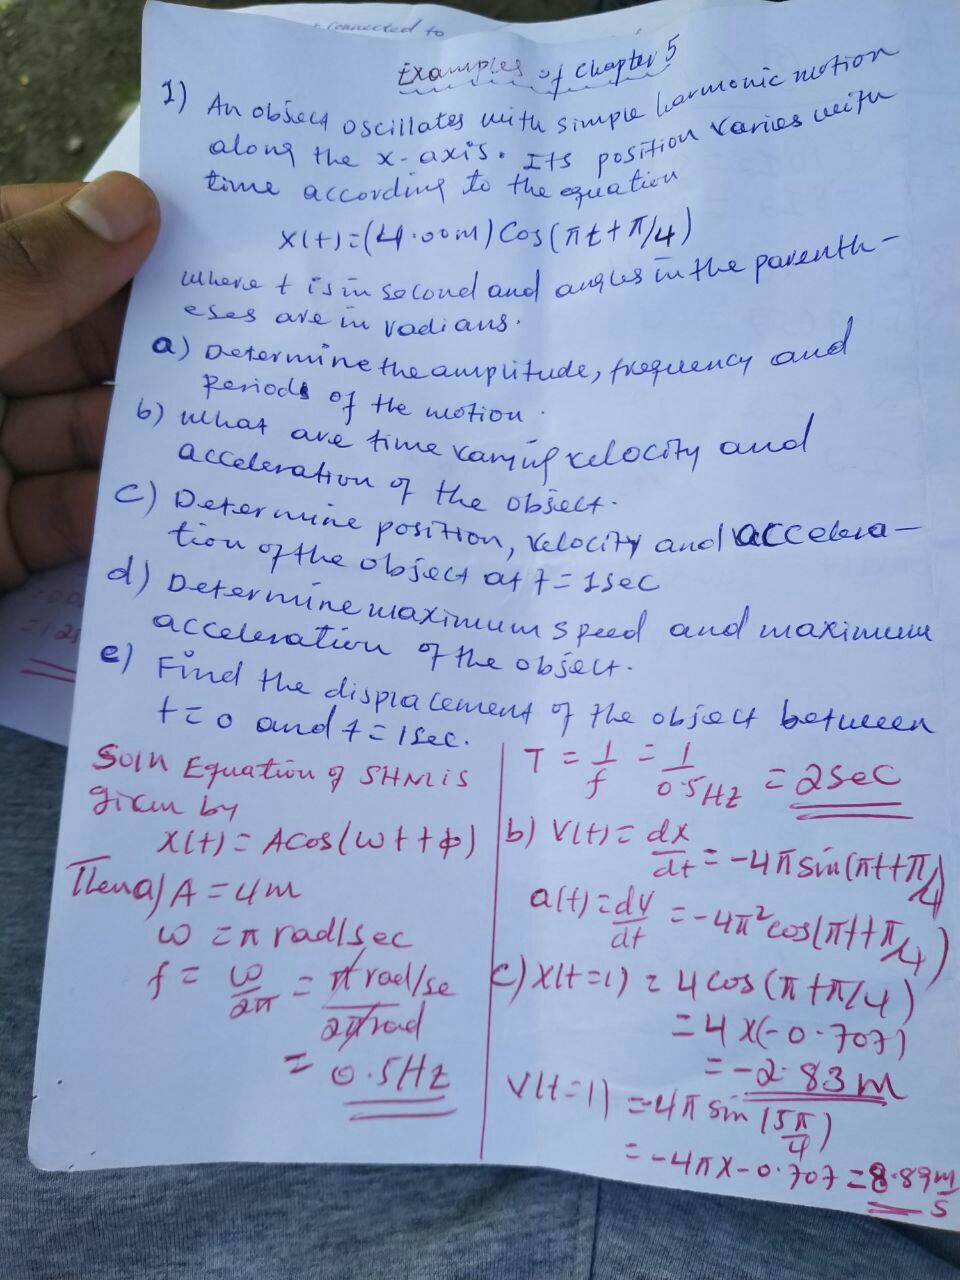 connected to
Examples of Chapter 5
1) An object oscillates with simple harmonic motion
along the x-axis. Its position varies with
time according to the equation
x(t)=(4.00m)Cos(πt+π/4)
where t is in second and angles in the parenth-
eses are in radians.
a) Determine the amplitude, frequency and
Periods of the motion.
b) what are time varying velocity and
acceleration of the object.
c) Determine position, velocity and accelera-
tion of the object at t=1sec
d) Determine maximum speed and maximum
acceleration of the object.
e) Find the displacement of the object between
t=0 and t=1sec.
Soln Equation of SHM is
given by
x(t)=Acos(ωt+φ)
Then a) A=4m
ω=π rad/sec
f = ω/2π = π rad/se/2π rad
= 0.5Hz
T = 1/f = 1/0.5Hz = 2sec
b) V(t)= dx/dt = -4π sin(πt+π/4)
a(t)=dv/dt = -4π²cos(πt+π/4)
c) x(t=1) = 4cos(π+π/4)
= 4x(-0.707)
= -2.83m
V(t=1) =-4π sin(5π/4)
= -4πx-0.707 =8.89m/s